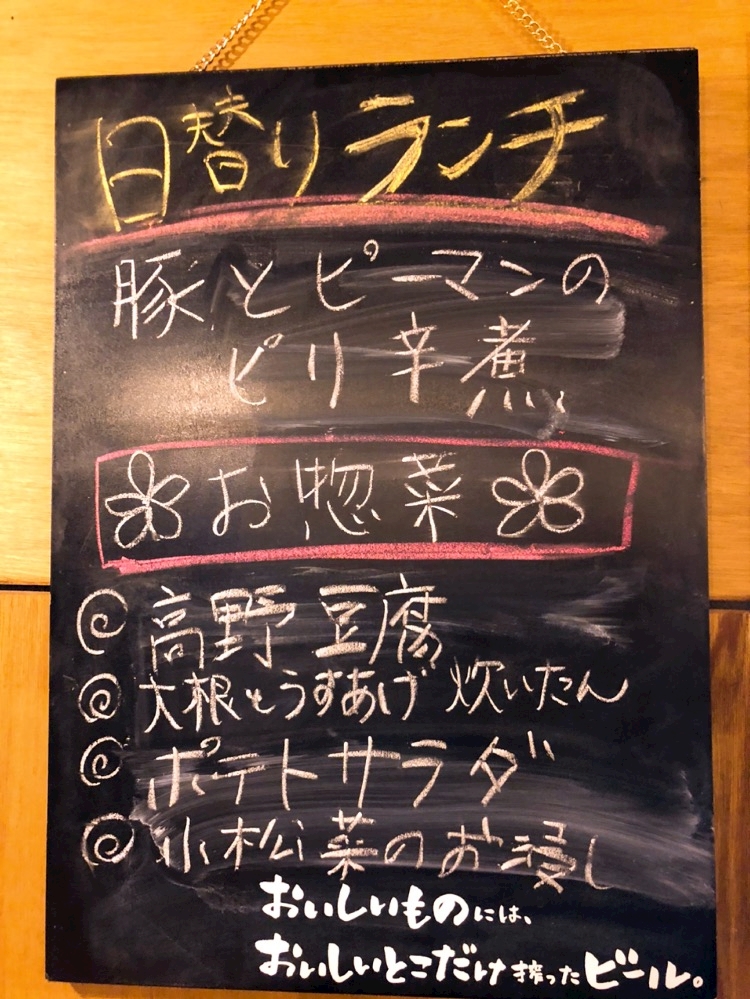 日替りランチ
豚とピーマンの
ピリ辛煮
お惣菜
高野豆腐
大根とうすあげ 炊いたん
ポテトサラダ
小松菜のお浸し
おいしいものには、
おいしいとこだけ搾ったビール。